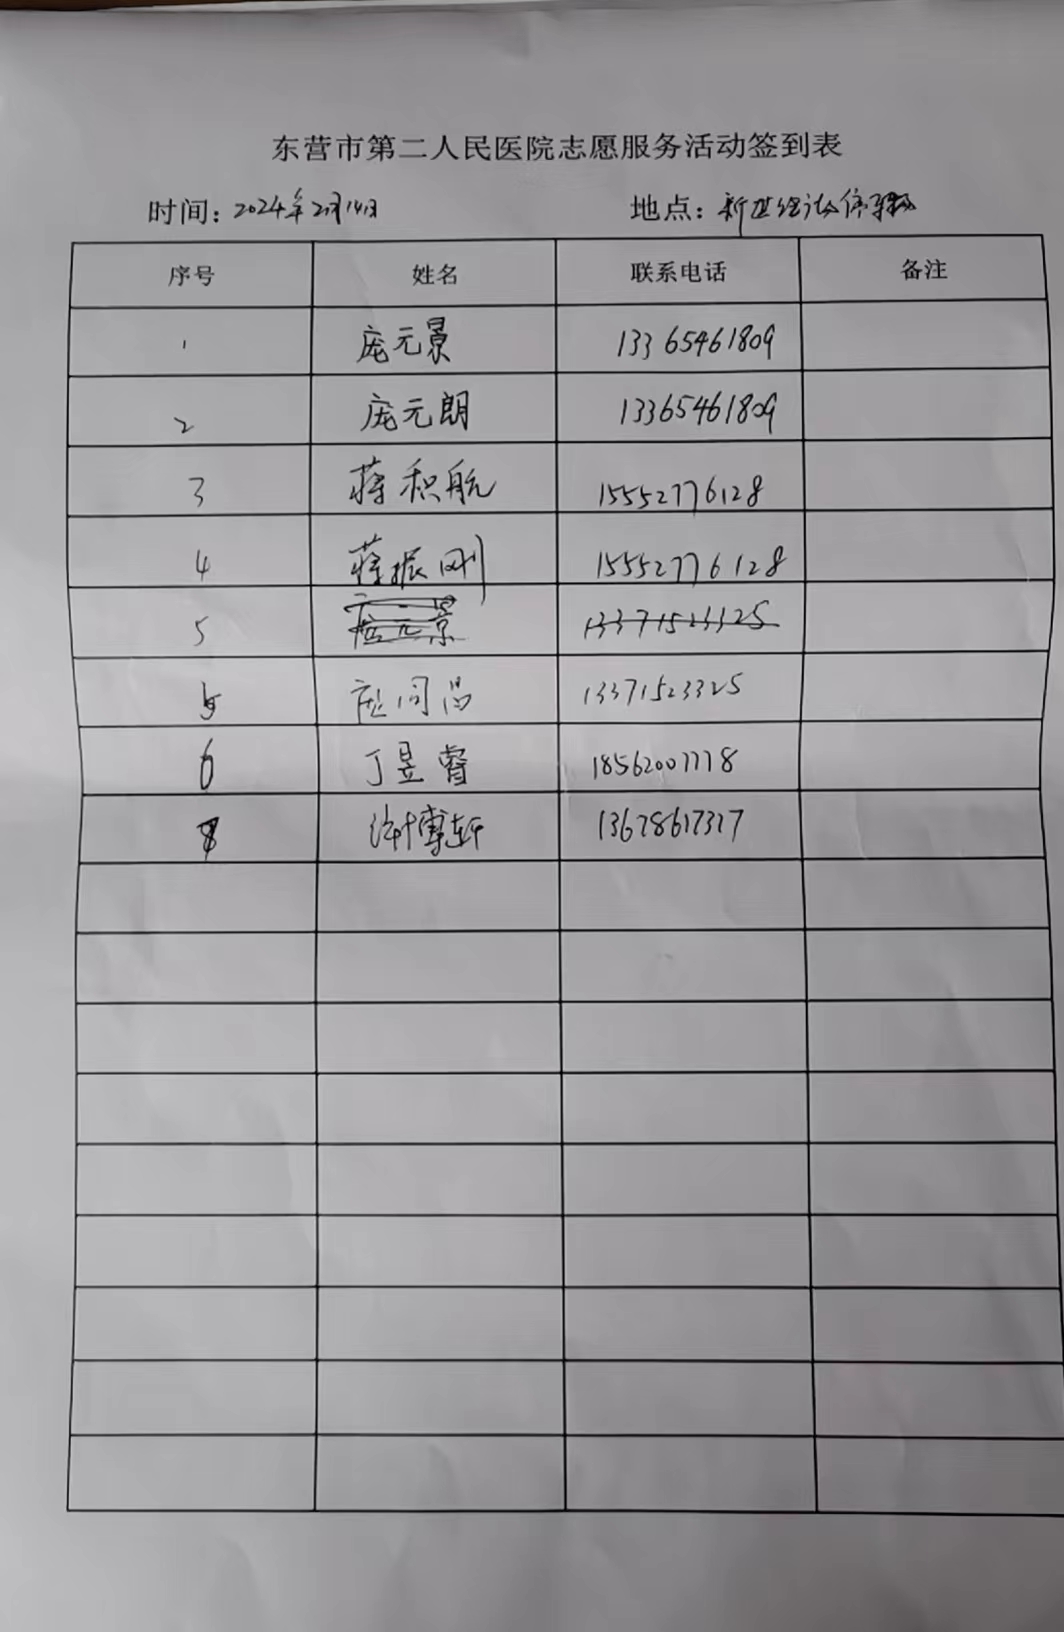 东营市第二人民医院志愿服务活动签到表
时间：2024年2月14日 地点：新世纪
序号 姓名 联系电话 备注
1 庞元景 13365461809
2 庞元朗 13365461809
3 蒋积航 15552776128
4 蒋振刚 15552776128
5 庞元景 13371523325
5 庞同昌 13371523325
6 丁昱睿 18562007778
7 许博轩 13678617317